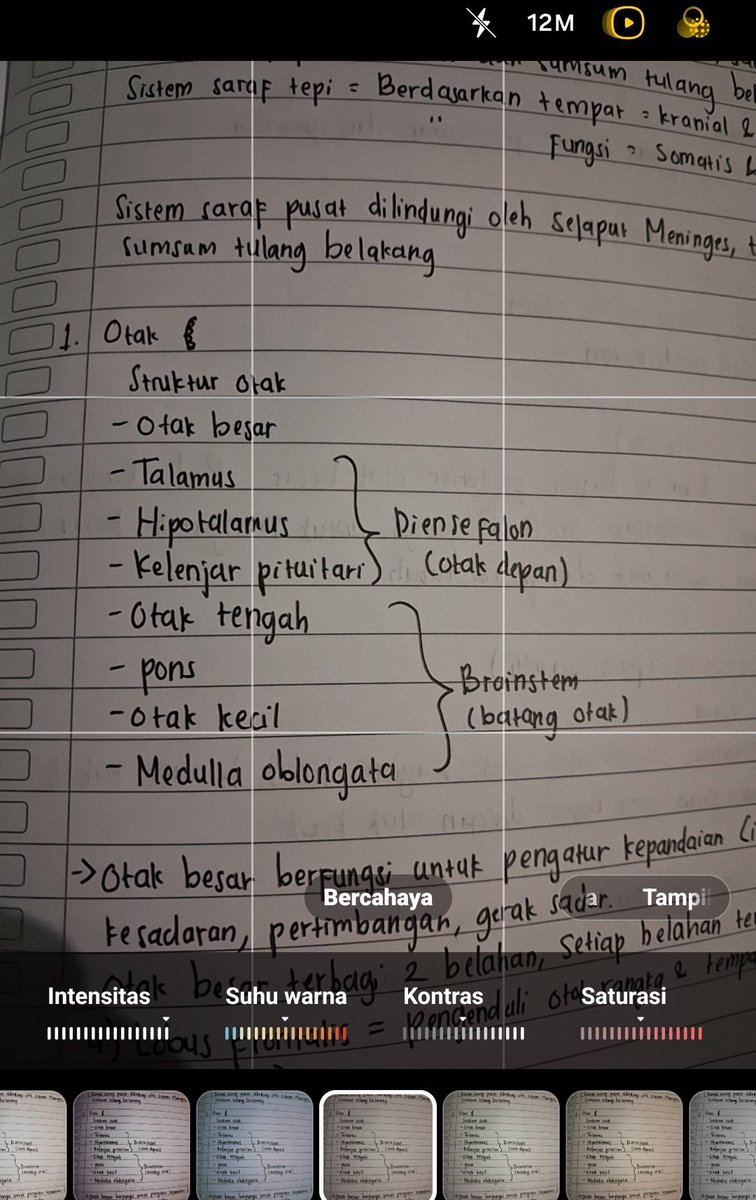 12M
sumsum tulang bel
Sistem saraf tepi = Berdasarkan tempat = kranial &
" Fungsi = Somatis &
Sistem saraf pusat dilindungi oleh Selaput Meninges, t
sumsum tulang belakang
1. Otak {
Struktur otak
- Otak besar
- Talamus
- Hipotalamus
- Kelenjar pituitari
Diensefalon
(otak depan)
- Otak tengah
- pons
- Otak kecil
- Medulla oblongata
Brainstem
(batang otak)
-> Otak besar berfungsi untuk pengatur kepandaian (i
kesadaran, pertimbangan, gerak sadar.
Otak besar terbagi 2 belahan, Setiap belahan te
= Pengenduli otot rangka & tempa
Bercahaya
Tampi
Intensitas
Suhu warna
Kontras
Saturasi